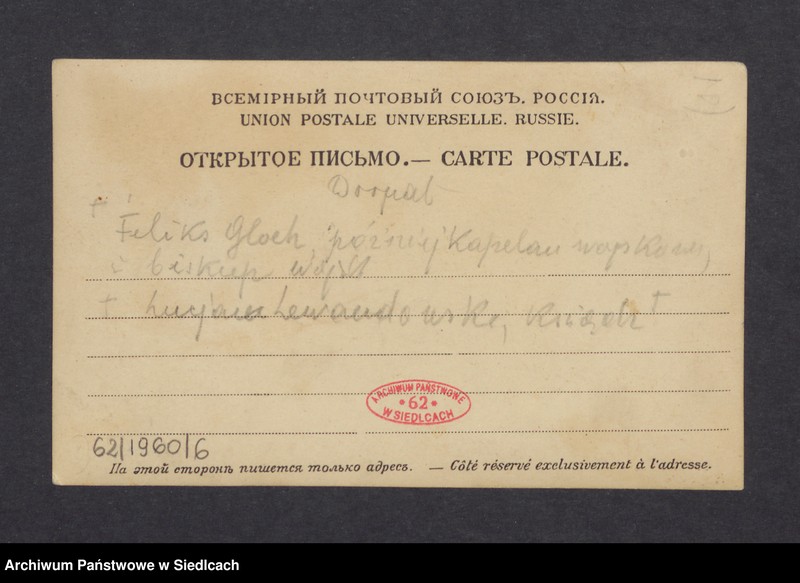 ВСЕМІРНЫЙ ПОЧТОВЫЙ СОЮЗЪ. РОССІЯ.
UNION POSTALE UNIVERSELLE. RUSSIE.
ОТКРЫТОЕ ПИСЬМО.— CARTE POSTALE.
Dorpat
+
Feliks Gloch później Kapelan
i biskup
+ Lucjan Lewandowski, Ksiądz +
ARCHIWUM PAŃSTWOWE
* 62 *
W SIEDLCACH
62/1960/6
На этой сторонѣ пишется только адресъ. — Côté réservé exclusivement à l'adresse.
Archiwum Państwowe w Siedlcach